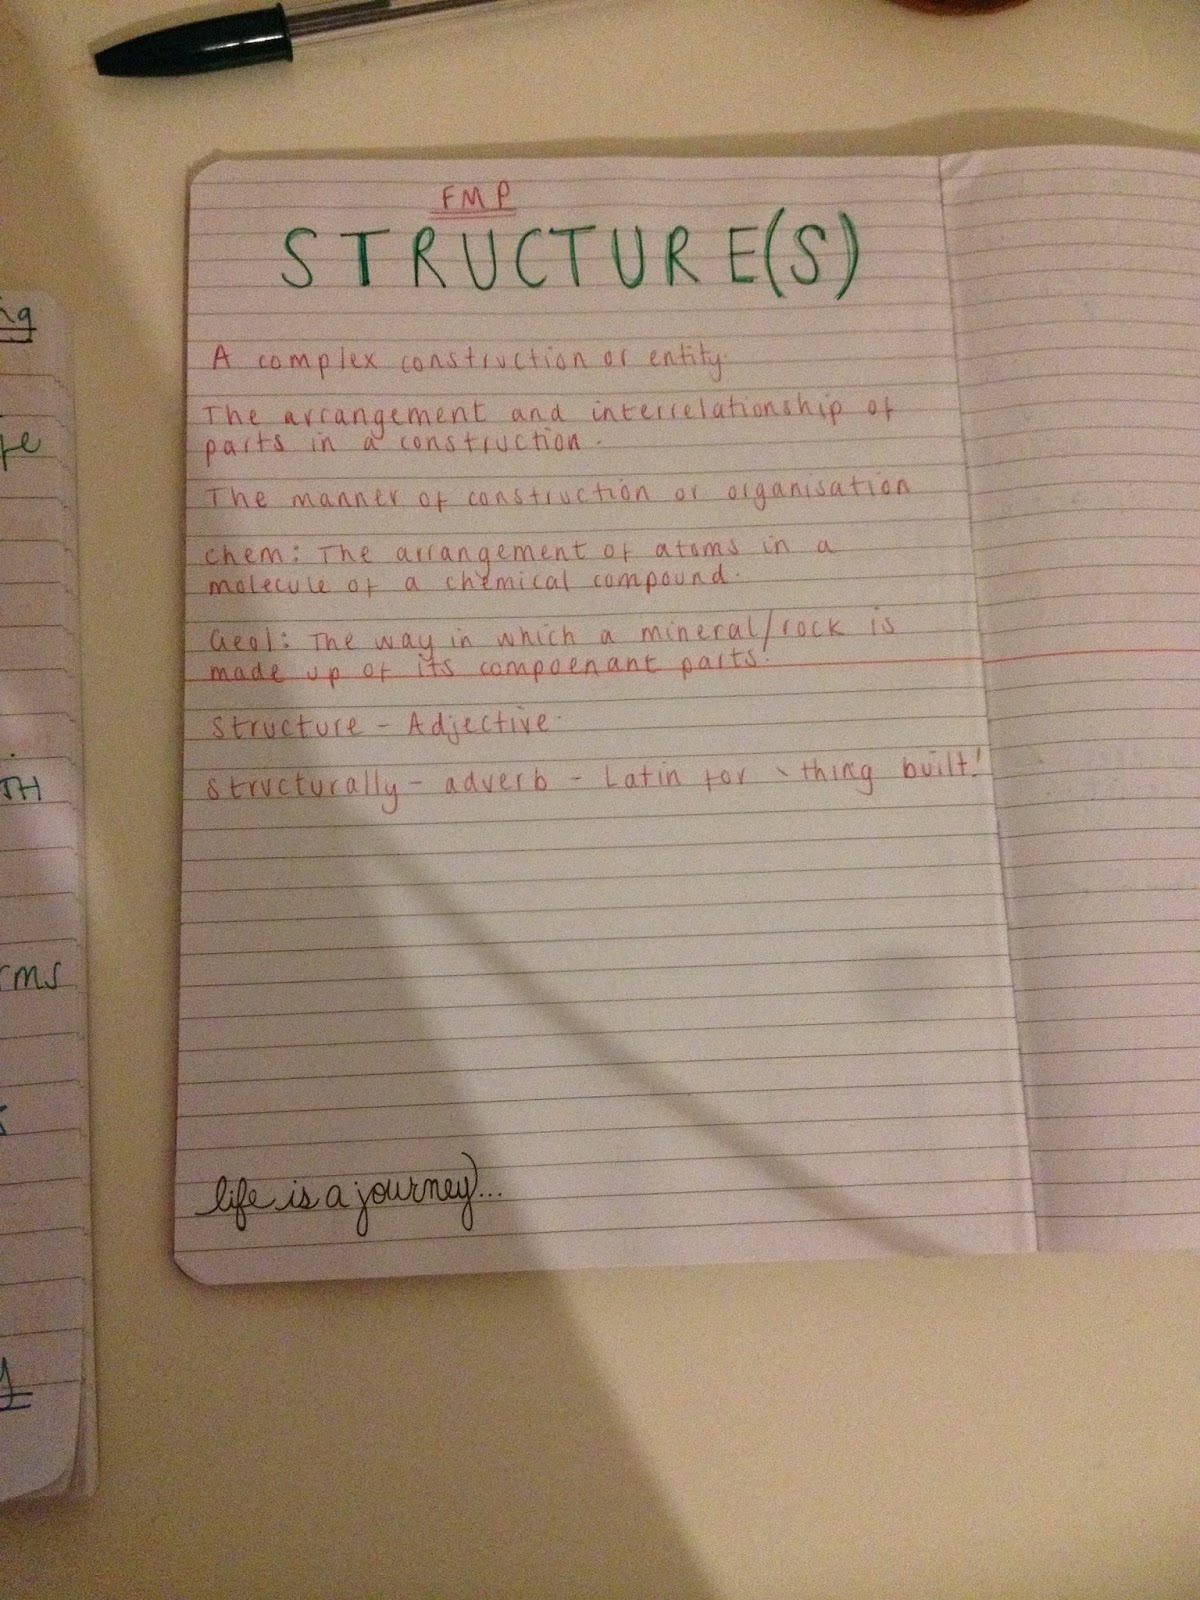 FMP
STRUCTURE(S)
A complex construction or entity.
The arrangement and interrelationship of
parts in a construction.
The manner of construction or organisation
Chem: The arrangement of atoms in a
molecule of a chemical compound.
Geol: The way in which a mineral/rock is
made up of its compoenant parts.
Structure - Adjective.
Structurally - adverb - Latin for ` thing built.'
life is a journey...
ng
fe
TH
rms